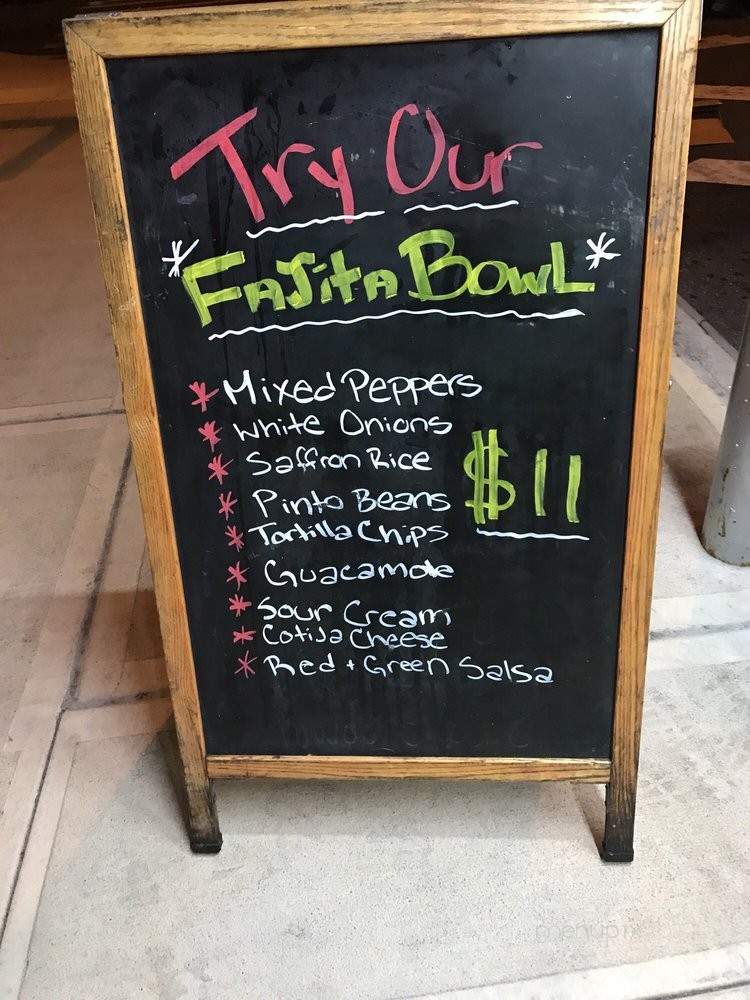 Try Our
*Fajita Bowl*
* Mixed Peppers
* White Onions
* Saffron Rice
$11
* Pinto Beans
* Tortilla Chips
* Guacamole
* Sour Cream
* Cotija Cheese
* Red + Green Salsa